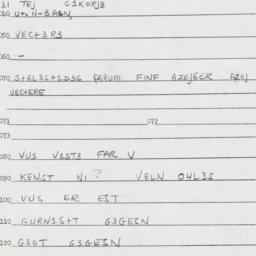 31 TEJ C1KORJ3
040 U+N-3AGN,
050 VEC+3R3
060 -
070 S+AL3S+1D3S FARUM FINF AZEJGER
VECHERE
071 072
073
080 VUS V1ST3 FAR V
090 KENST NI? VELN O4L3S
100 VUS ER EST
110 GURN1S+T G3GESN
120 G3OT G3GESN